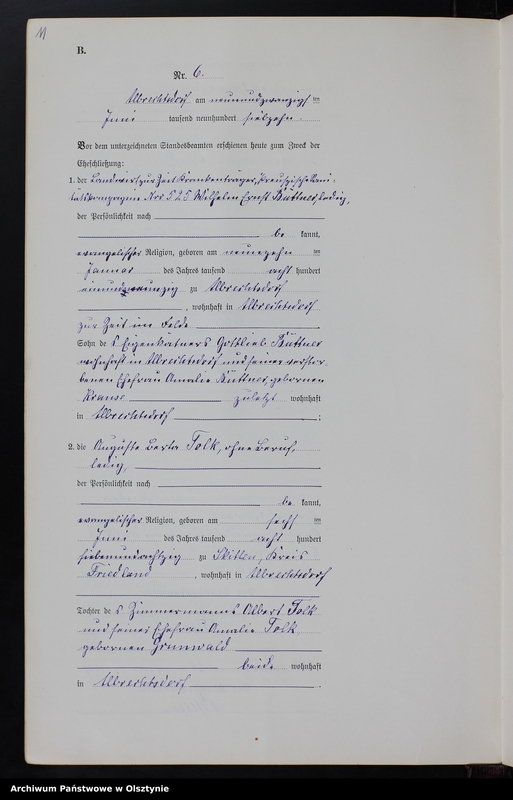 11
B.
Nr. 6.
Albrechtsdorf am neunundzwanzigs ten
Juni tausend neunhundert siebzehn.
Vor dem unterzeichneten Standesbeamten erschienen heute zum Zweck der
Eheschließung:
1. der Landwirt, zur Zeit Krankenträger, Preußische Sani-
tätskompagnie Nro 525 Wilhelm Ernst Büttner, ledig,
der Persönlichkeit nach
be kannt,
evangelischer Religion, geboren am neunzehn ten
Januar des Jahres tausend acht hundert
einundneunzig zu Albrechtsdorf
, wohnhaft in Albrechtsdorf
zur Zeit im Felde
Sohn des Eigenkätners Gottlieb Büttner
wohnhaft in Albrechtsdorf und seiner verstor-
benen Ehefrau Amalie Büttner, gebornen
Krause zuletzt wohnhaft
in Albrechtsdorf ;
2. die Auguste Berta Tolk, ohne Beruf,
ledig,
der Persönlichkeit nach
be kannt,
evangelischer Religion, geboren am sechs ten
Juni des Jahres tausend acht hundert
siebenundachtzig zu Skitten, Kreis
Friedland, wohnhaft in Albrechtsdorf
Tochter des Zimmermanns Albert Tolk
und seiner Ehefrau Amalie Tolk
gebornen Grunwald
beide wohnhaft
in Albrechtsdorf .
Archiwum Państwowe w Olsztynie